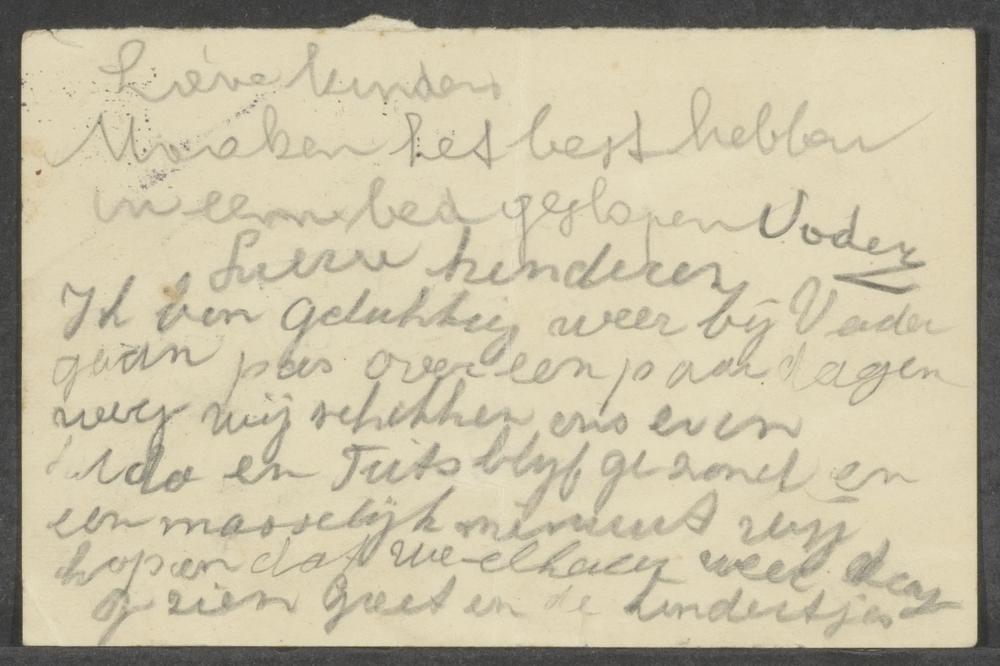 Lieve kinders
Maaken het best hebben
in eem bed geslapen Vader
Lieve kinderen
Ik ben gelukkig weer bij Vader
gaan pas over een paar dagen
weg wij schikken ons even
en Tuts blijf gezond en
een masselijk wij
hopen dat we elkaar weer
zien Groet en de kindertjes